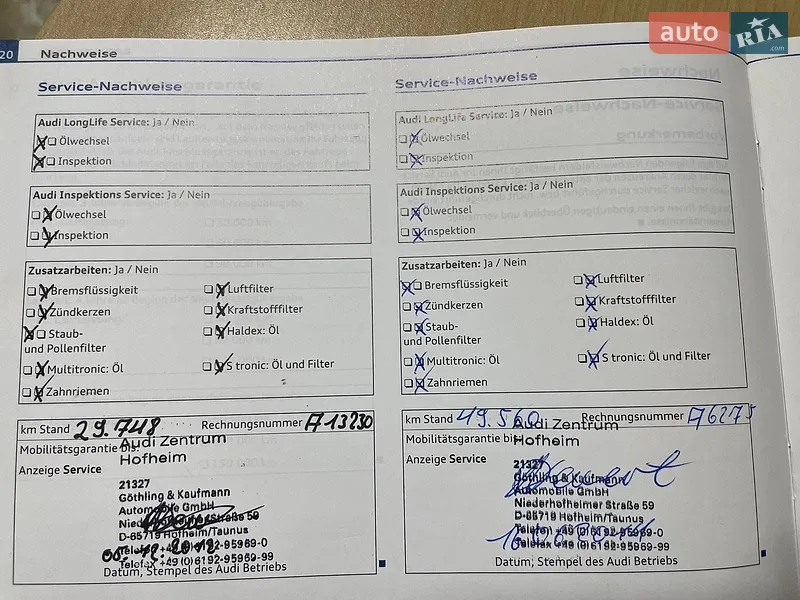 auto RIA .com
20 Nachweise
Service-Nachweise
Audi LongLife Service: Ja / Nein
Ölwechsel
Inspektion
Audi Inspektions Service: Ja / Nein
Ölwechsel
Inspektion
Zusatzarbeiten: Ja / Nein
Bremsflüssigkeit Luftfilter
Zündkerzen Kraftstofffilter
Staub- Haldex: Öl
und Pollenfilter
Multitronic: Öl S tronic: Öl und Filter
Zahnriemen
km Stand 29.748 Rechnungsnummer A13230
Mobilitätsgarantie bis:
Audi Zentrum
Hofheim
Anzeige Service
21327
Göthling & Kaufmann
Automobile GmbH
Niederhofheimer Straße 59
D-65719 Hofheim/Taunus
Telefon +49 (0) 6192-95969-0
Telefax +49 (0) 6192-95969-99
Datum, Stempel des Audi Betriebs
Service-Nachweise
Audi LongLife Service: Ja / Nein
Ölwechsel
Inspektion
Audi Inspektions Service: Ja / Nein
Ölwechsel
Inspektion
Zusatzarbeiten: Ja / Nein
Bremsflüssigkeit Luftfilter
Zündkerzen Kraftstofffilter
Staub- Haldex: Öl
und Pollenfilter
Multitronic: Öl S tronic: Öl und Filter
Zahnriemen
km Stand 49.560 Rechnungsnummer A76275
Mobilitätsgarantie bis:
Audi Zentrum
Hofheim
Anzeige Service
21327
Göthling & Kaufmann
Automobile GmbH
Niederhofheimer Straße 59
D-65719 Hofheim/Taunus
Telefon +49 (0) 6192-95969-0
Telefax +49 (0) 6192-95969-99
Datum, Stempel des Audi Betriebs